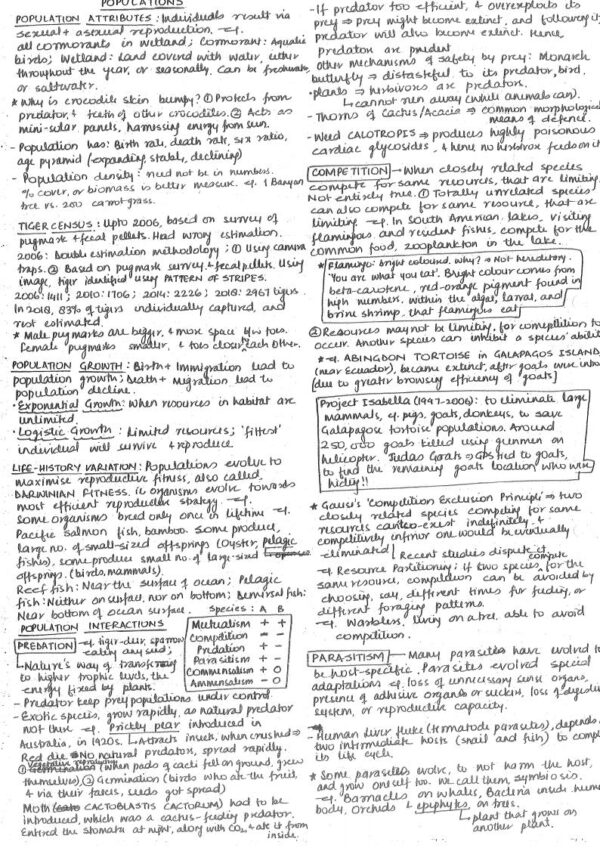 POPULATIONS
POPULATION ATTRIBUTES: Individuals result via
sexual + asexual reproduction, eg.
all cormorants in wetland; Cormorant: Aquatic
birds; Wetland: Land covered with water, either
throughout the year, or seasonally. Can be freshwater
or saltwater.
* Why is crocodile skin bumpy? ① Protects from
predator, & teeth of other crocodiles. ② Acts as
mini-solar panels, harnessing energy from sun.
- Population has: Birth rate, death rate, sex ratio,
age pyramid (expanding, stable, declining)
- Population density: need not be in numbers.
% cover, or biomass is better measure. eg. 1 Banyan
tree vs. 200 carrot grass.
TIGER CENSUS: Upto 2006, based on survey of
pugmark & fecal pellets. Had wrong estimation.
2006: Double estimation methodology: ① Using camera
traps. ② Based on pugmark survey & fecal pellets. Using
image, tiger identified using PATTERN OF STRIPES.
2006: 1411; 2010: 1706; 2014: 2226; 2018: 2967 tigers.
In 2018, 83% of tigers individually captured, and
rest estimated.
* Male pugmarks are bigger, & more space b/w toes.
Female pugmarks smaller, & toes closer each other.
POPULATION GROWTH: Birth + Immigration lead to
population growth; Death + Migration lead to
population decline.
• Exponential Growth: When resources in habitat are
unlimited.
• Logistic Growth: Limited resources; 'fittest'
individual will survive & reproduce
LIFE-HISTORY VARIATION: Populations evolve to
maximise reproductive fitness, also called
DARWINIAN FITNESS, ie organisms evolve towards
most efficient reproductive strategy. eg.
Some organisms breed only once in lifetime eg.
Pacific salmon fish, bamboo. Some produce
large no. of small-sized offsprings (Oyster, Pelagic
fishes), some produce small no. of large-sized
offspring. (birds, mammals).
Reef fish: Near the surface of ocean; Pelagic
fish: Neither on surface, nor on bottom; Demersal fish:
Near bottom of ocean surface.
POPULATION INTERACTIONS
Species: A B
Mutualism + +
Competition - -
Predation + -
Parasitism + -
Commensalism + 0
Ammensalism - 0
PREDATION - eg. tiger-deer, sparrow
eating any seed;
↳ Nature's way of transferring
to higher trophic levels, the
energy fixed by plants.
- Predator keep prey populations under control.
- Exotic species, grow rapidly, as natural predator
not there eg. Prickly pear introduced in
Australia, in 1920s. ↳ Attracts insect, when crushed ⇒
Red dye. No natural predator, spread rapidly.
Vegetative reproduction
① Germination (when pads of cacti fell on ground, grew
themselves), ② Germination (birds who ate the fruit,
& via their faeces, seeds got spread)
Moth CACTOBLASTIS CACTORUM) had to be
introduced, which was a cactus-feeding predator.
Entered the stomata at night, along with CO₂, & ate it from
inside.
- If predator too efficient, & overexploits its
prey ⇒ prey might become extinct, and following it
predator will also become extinct. Hence,
Predators are prudent
- Other mechanisms of safety by prey: Monarch
butterfly ⇒ distasteful to its predator, bird.
• plants ⇒ herbivores are predators.
↳ cannot run away (while animals can).
- Thorns of Cactus/Acacia ⇒ common morphological
means of defence.
- Weed CALOTROPES ⇒ produces highly poisonous
cardiac glycosides, & hence no herbivore feeds on it
COMPETITION - When closely related species
compete for same resources, that are limiting.
Not entirely true. ① Totally unrelated species
can also compete for same resource, that are
limiting eg. In South American lakes, visiting
flamingoes, and resident fishes, compete for the
common food, zooplankton in the lake.
* Flamingo: bright coloured. Why? ⇒ Not hereditary.
'You are what you eat'. Bright colour comes from
beta-carotene, red-orange pigment found in
high numbers, within the algae, larval, and
brine shrimp, that flamingoes eat
② Resources may not be limiting, for competition to
occur. Another species can inhibit a species' abilit
* eg. ABINGDON TORTOISE in GALAPAGOS ISLAND
(near Ecuador), became extinct, after goats were intro
[due to greater browsing efficiency of goats]
Project Isabella (1997-2006): to eliminate large
mammals, eg. pigs, goats, donkeys, to save
Galapagos tortoise populations. Around
250,000 goats killed using gunmen on
helicopter. Judas Goats ⇒ GPS tied to goats,
to find the remaining goats location who were
hiding!!
* Gause's 'Competition Exclusion Principle' ⇒ two
closely related species competing for same
resources cannot co-exist indefinitely, &
competitively inferior one would be eventually
eliminated. Recent studies dispute it.
eg. Resource Partitioning: if two species compete for the
same resource, competition can be avoided by
choosing, say, different times for feeding, or
different foraging patterns.
- eg. Warblers, living on a tree, able to avoid
competition.
PARASITISM - Many parasites have evolved to
be host-specific. Parasites evolved special
adaptations eg. loss of unnecessary sense organs,
presence of adhesive organs or suckers, loss of digestive
system, or reproductive capacity.
- Human liver fluke (trematode parasites), depends
two intermediate hosts (snail and fish) to comple
its life cycle.
* Some parasites evolve, to not harm the host,
and grow oneself too. We call them, symbiosis.
- eg. Barnacles on whales, Bacteria inside human
body, Orchids & epiphytes, on trees.
↳ plant that grows on
another plant.